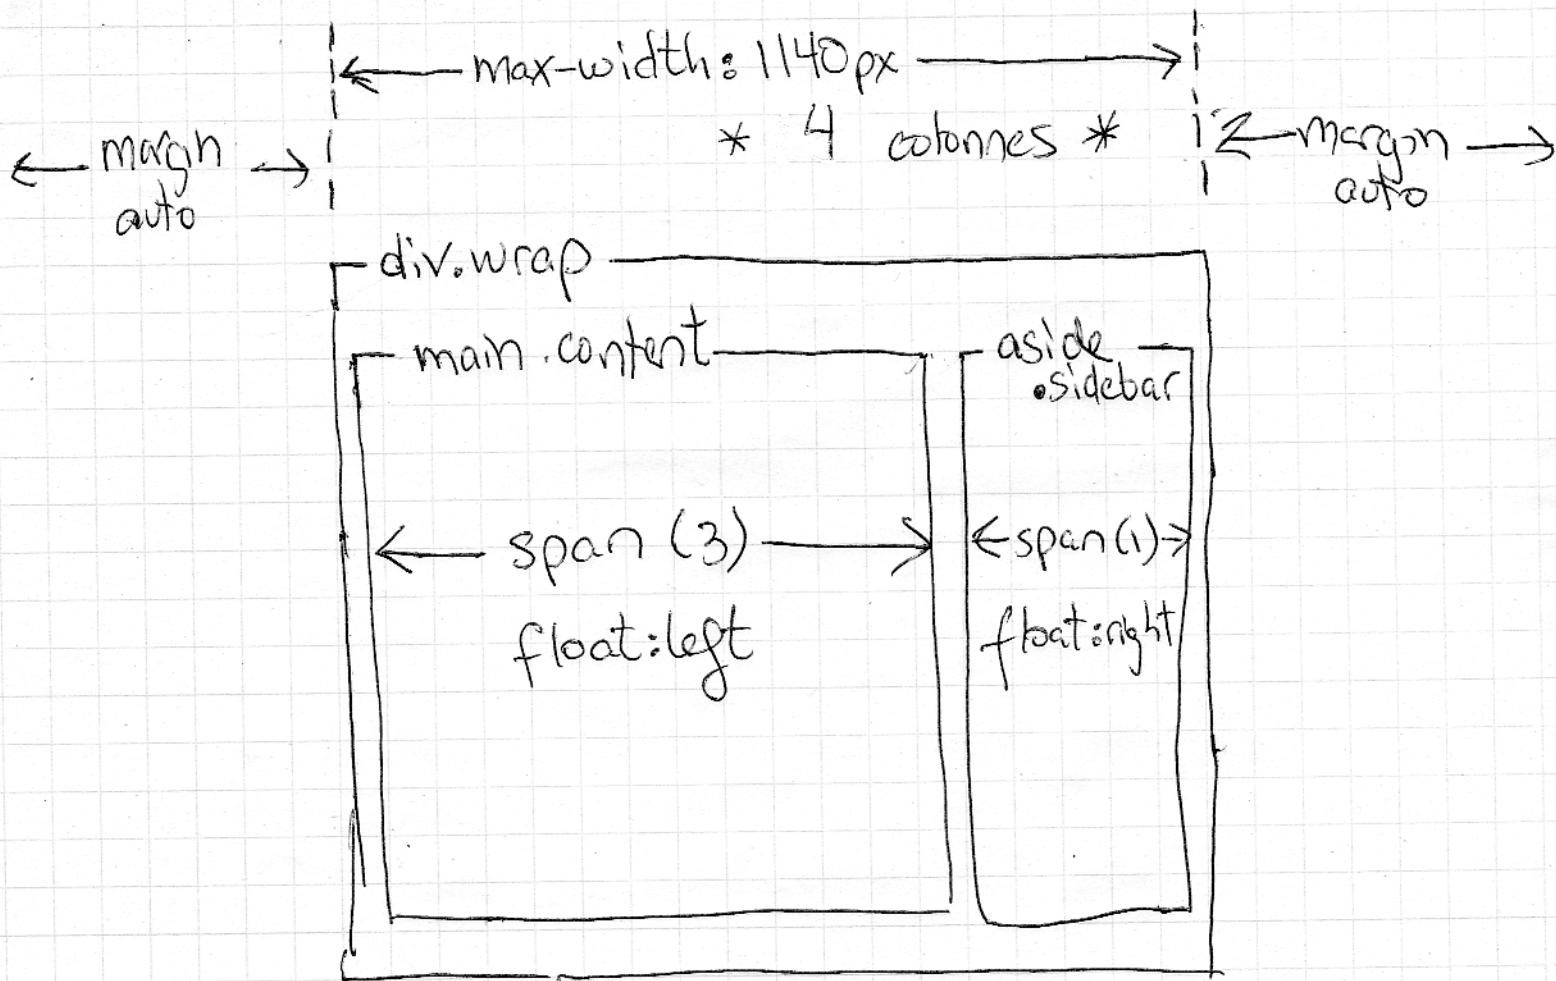 max-width: 1140px
* 4 colonnes *
margin
auto
margin
auto
div.wrap
main.content
aside
.sidebar
span (3)
span (1)
float:left
float:right